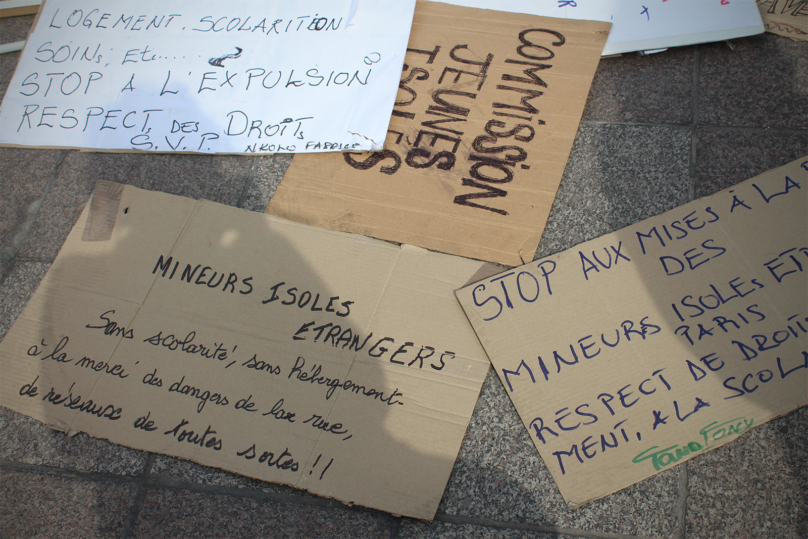 LOGEMENT. SCOLARITION
SOINS; Etc.....
STOP A L'EXPULSION
RESPECT DES DROITS
S.V.P. NKOLO FABRICE
COMMISSION
JEUNES
ISOLÉS
MINEURS ISOLES
ETRANGERS
Sans scolarité, sans hébergement-
à la merci des dangers de la rue,
de réseaux de toutes sortes !!
STOP AUX MISES À LA
DES
MINEURS ISOLES ETR
PARIS
RESPECT DE DROIT
MENT, A LA SCOLA